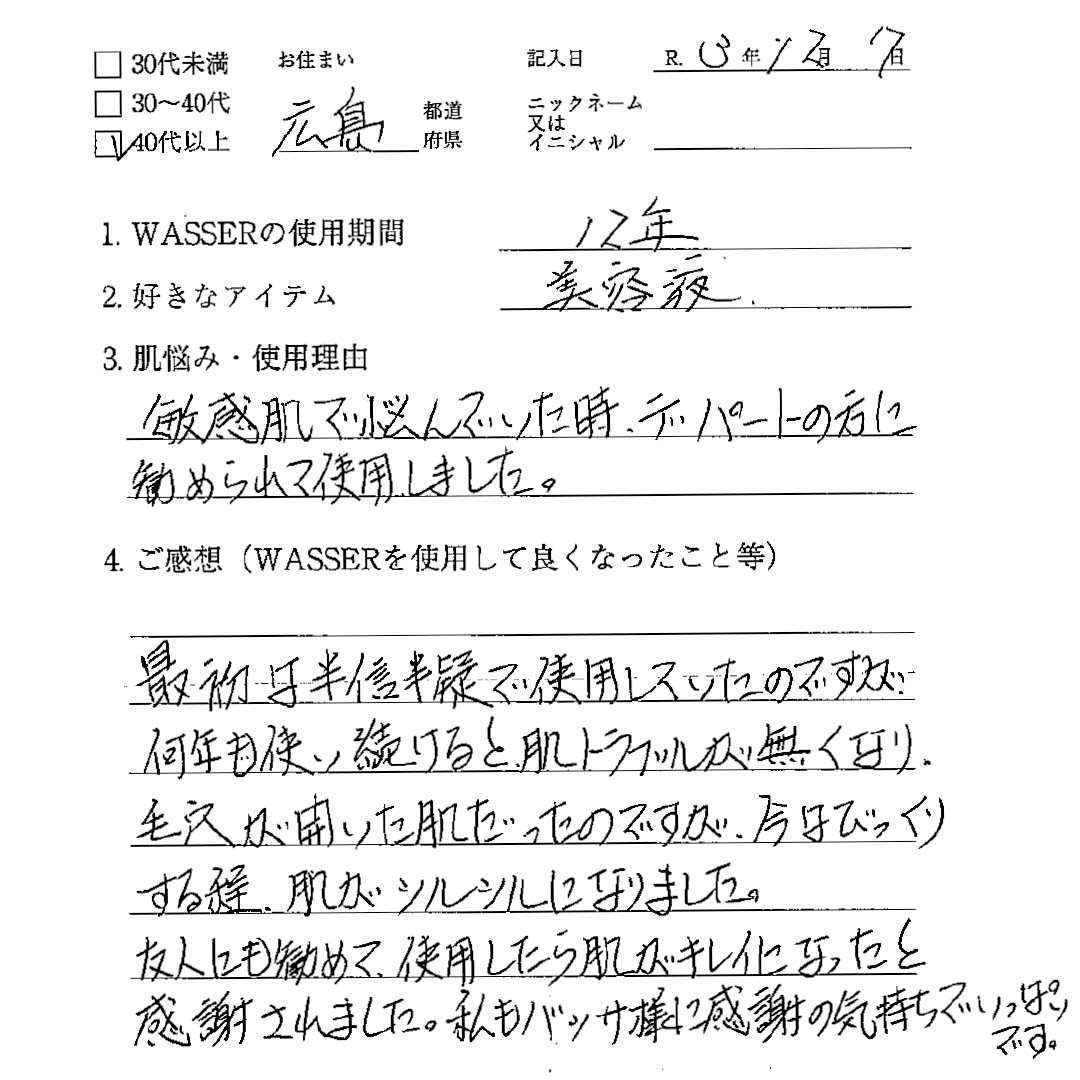 30代未満 お住まい 記入日 R. 3年12月17日
30〜40代 広島 都道 ニックネーム
府県 又は
40代以上 イニシャル
1. WASSERの使用期間 12年
2. 好きなアイテム 美容液.
3. 肌悩み・使用理由
敏感肌で悩んでいた時、デパートの方に
勧められて使用しました。
4. ご感想（WASSERを使用して良くなったこと等）
最初は半信半疑で使用していたのですが
何年も使い続けると、肌トラブルが無くなり、
毛穴が開いた肌だったのですが、今はびっくり
する程、肌がツルツルになりました。
友人にも勧めて、使用したら肌がキレイになったと
感謝されました。私もバッサ様に感謝の気持ちでいっぱい
です。